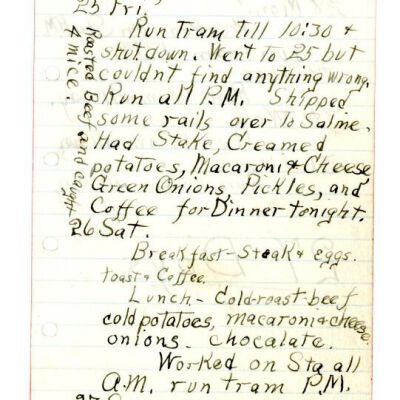 25 Fri.
Run Tram till 10:30 &
shut down. Went to 25 but
couldnt find anything wrong.
Run all P.M. Shipped
some rails over to Salme.
Had Stake, Creamed
potatoes, Macaroni & Cheese
Green Onions, Pickles, and
Coffee for Dinner tonight.
Roasted Beef and caught
4 mice.
26 Sat.
Breakfast - Steak & eggs.
toast & Coffee.
Lunch - Cold-roast-beef
cold potatoes, macaroni & cheese.
onions. chocalate.
Worked on Sta all
A.M. run tram P.M.